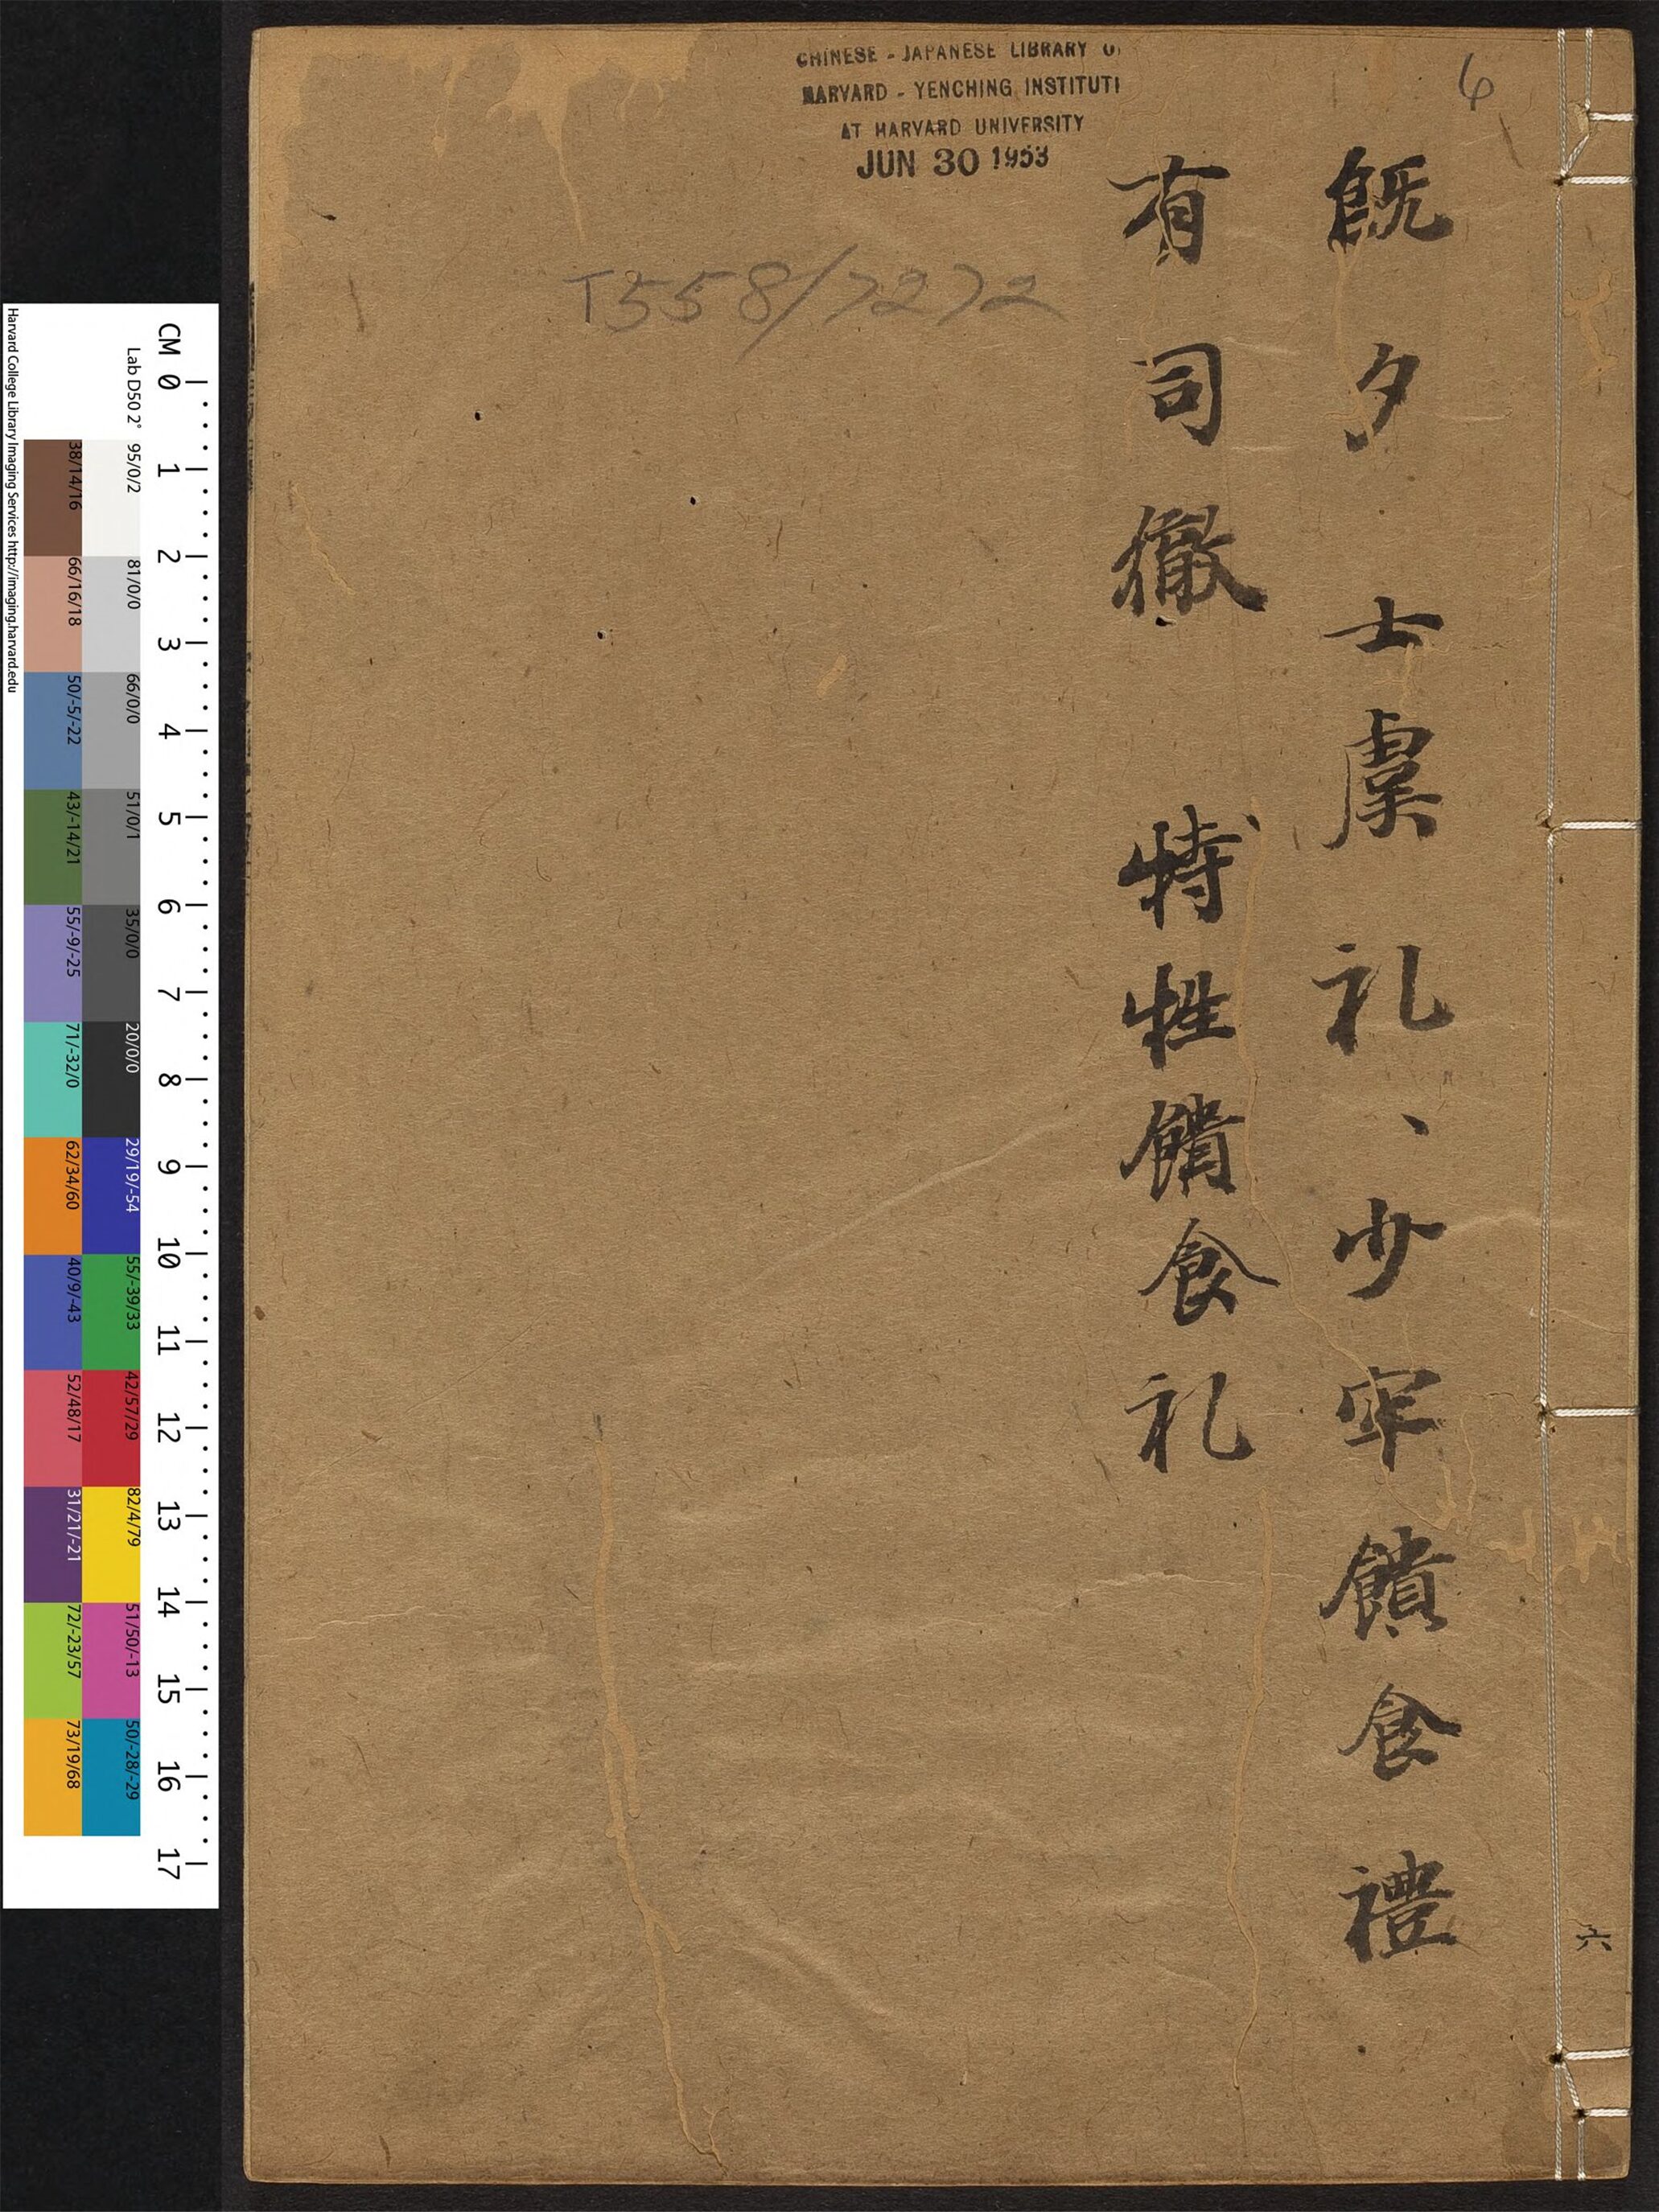 既夕 士虞礼、少牢饋食禮
有司徹 特牲饋食礼
六
6
CHINESE - JAPANESE LIBRARY O
HARVARD - YENCHING INSTITUT
AT HARVARD UNIVERSITY
JUN 30 1953
T558/7272
Harvard College Library Imaging Services http://imaging.harvard.edu
Lab D50 2°
CM 0 1 2 3 4 5 6 7 8 9 10 11 12 13 14 15 16 17
95/0/2 81/0/0 66/0/0 51/0/1 35/0/0 20/0/0 29/19/-54 55/-39/33 42/57/29 82/4/79 51/50/-13 50/-28/-29
38/14/16 66/16/18 50/-5/-22 43/-14/21 55/-9/-25 71/-32/0 62/34/60 40/9/-43 52/48/17 31/21/-21 72/-23/57 73/19/68